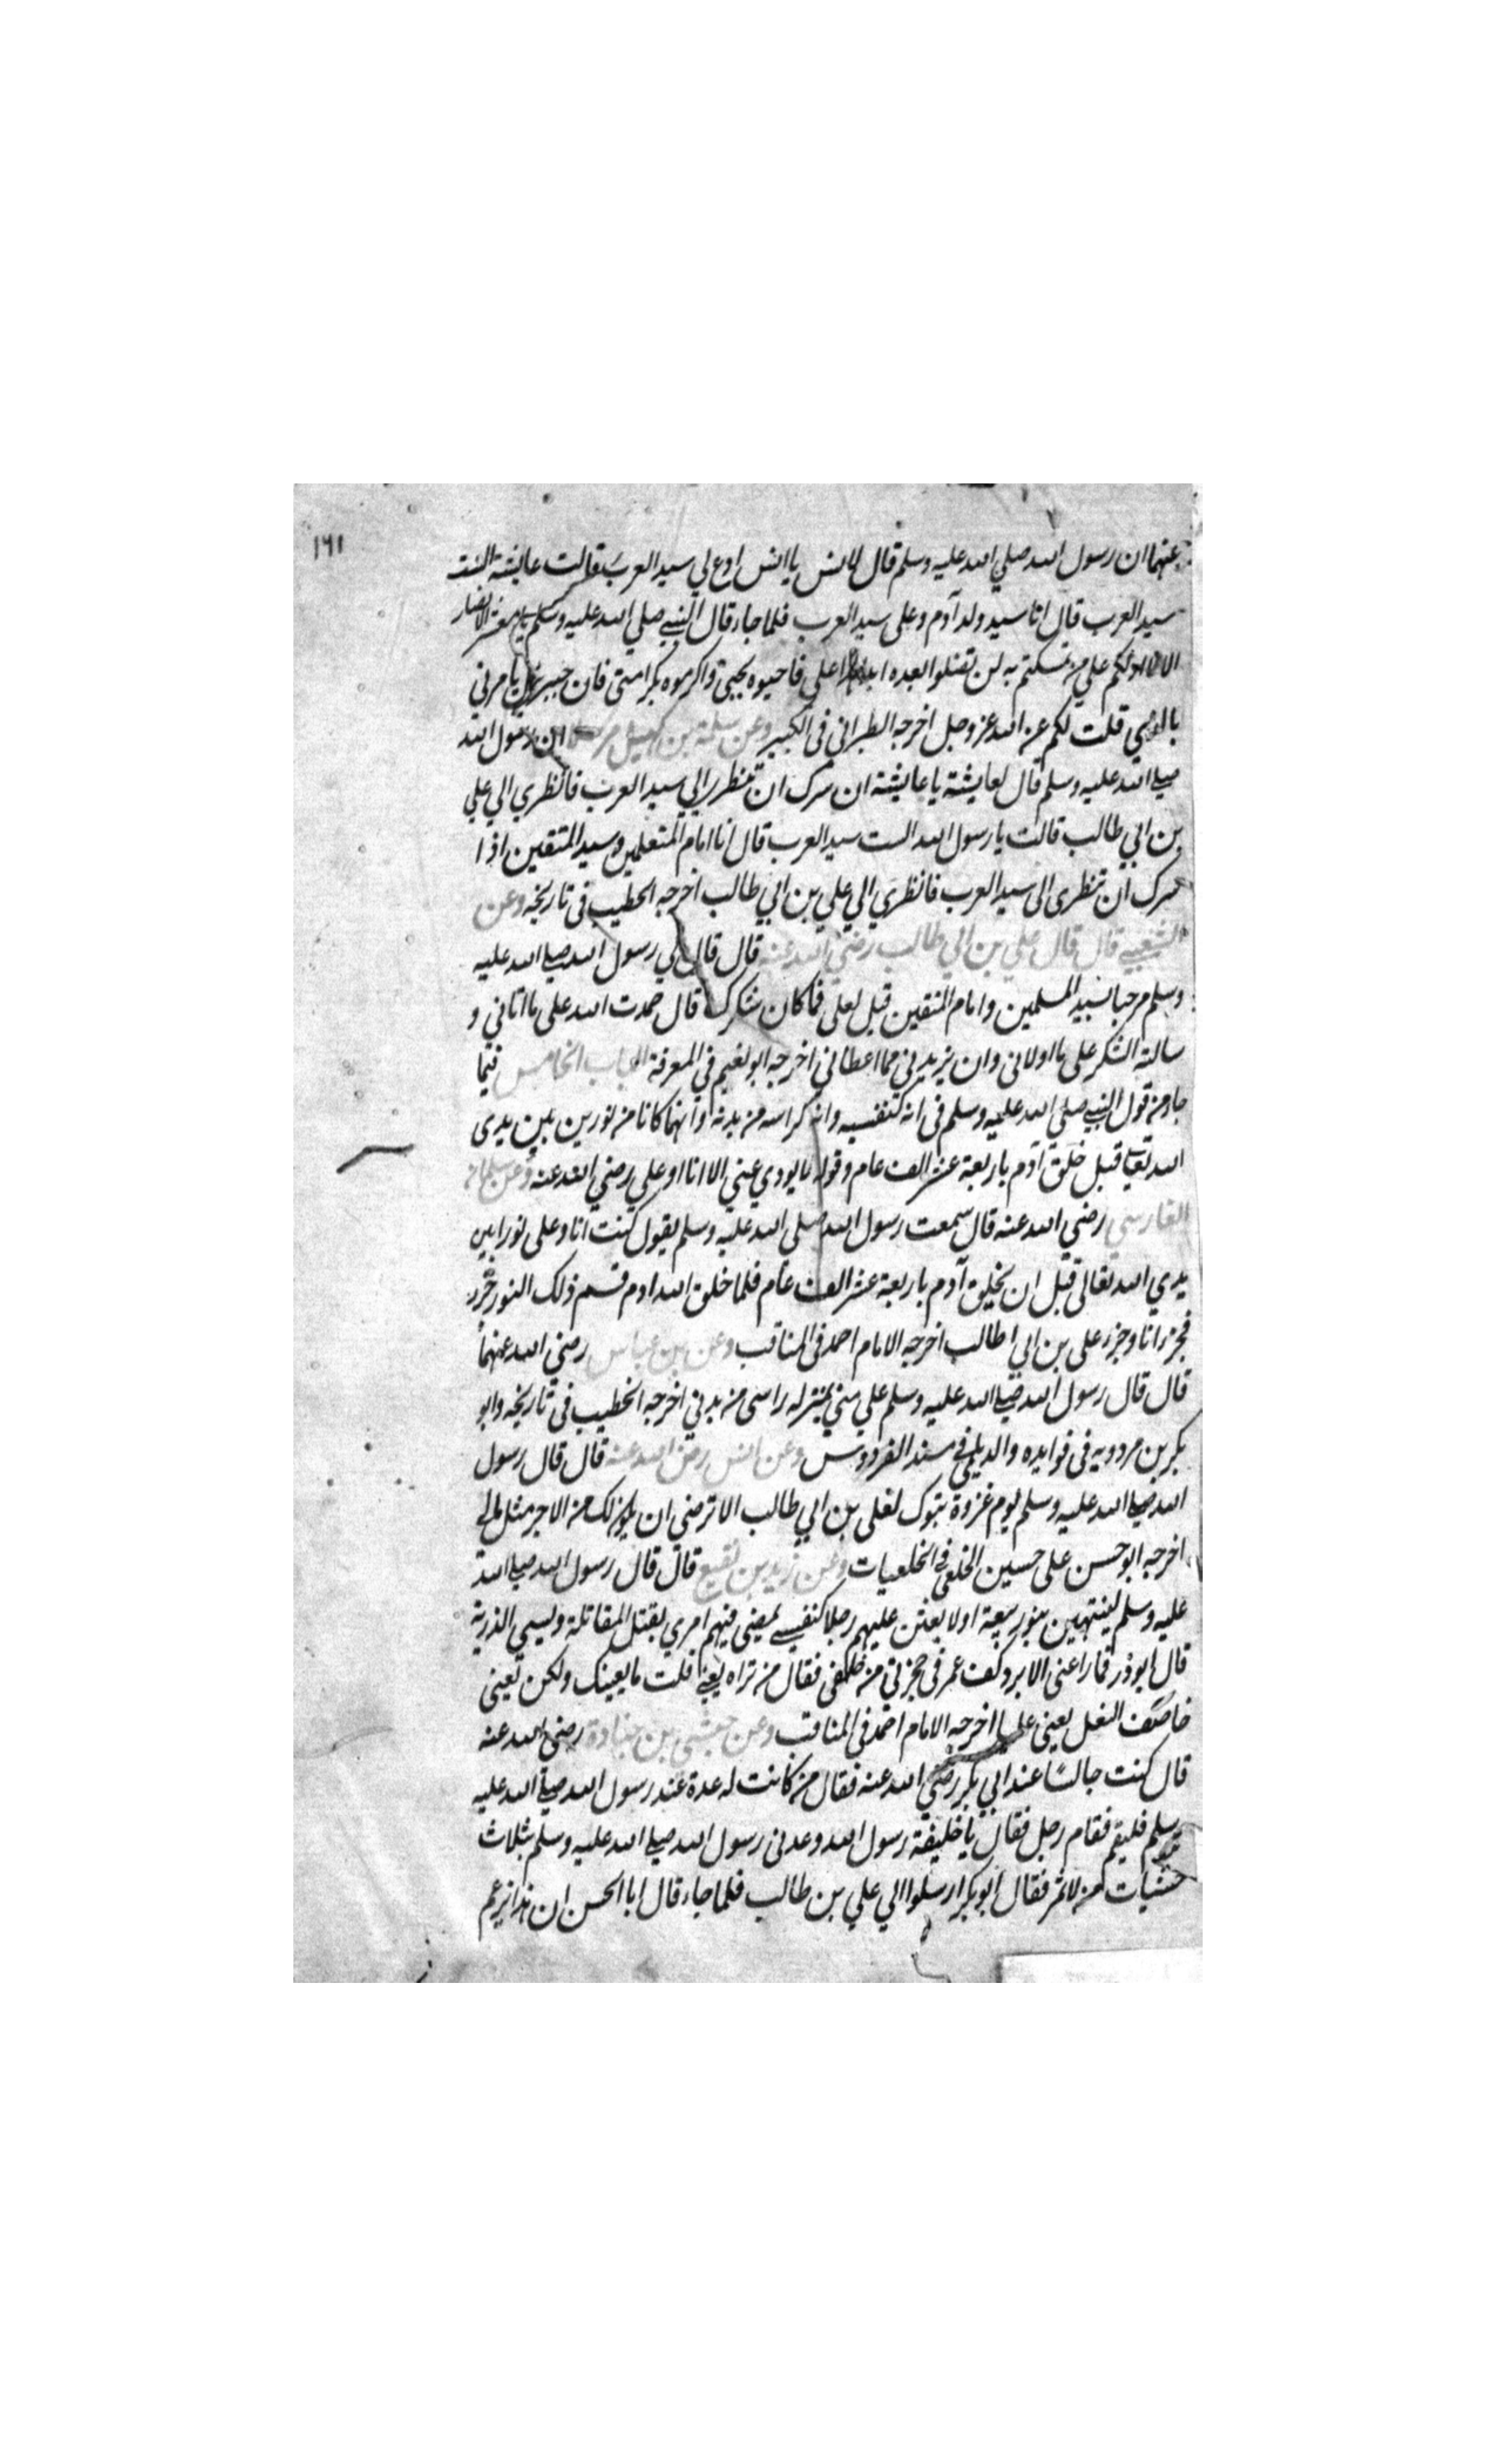 ١٦١
عنهما ان رسول الله صلي الله عليه وسلم قال لانس يا انس ادع لي سيد العرب فقالت عايشة الست
سيد العرب قال انا سيد ولد آدم وعلى سيد العرب فلما جاء قال النبي صلي الله عليه وسلم يا معشر الانصار
الا ادلكم علي من تمسكتم به لن تضلوا بعده ابدا هذا علي فاحبوه بحبي واكرموه بكرامتى فان جبريل يامرني
بالذي قلت لكم عن الله عز وجل اخرجه الطبراني فى الكبير وعن سلمة بن كهيل مرسلا ان رسول الله
صلي الله عليه وسلم قال لعايشة يا عايشة ان سرك ان تنظري الي سيد العرب فانظري الي علي
بن ابي طالب قالت يا رسول الله الست سيد العرب قال انا امام المتعلمين وسيد المتقين اذا
سرك ان تنظرى الى سيد العرب فانظري الي علي بن ابي طالب اخرجه الخطيب فى تاريخه وعن
الشعبي قال قال علي بن ابي طالب رضي الله عنه قال قال لي رسول الله صلي الله عليه
وسلم مرحبا بسيد المسلمين وامام المتقين قيل لعلى فما كان شكرك قال حمدت الله على ما اتاني و
سالته الشكر على ما اولانى وان يزيدني مما اعطاني اخرجه ابو نعيم في المعرفة الباب الخامس فيما
جاء من قول النبي صلي الله عليه وسلم فى انه كنفسه وانه كراسه من بدنه وانهما كانا من نورين بين يدى
الله تعالى قبل خلق آدم باربعة عشر الف عام وقوله لا يودي عني الا انا او علي رضي الله عنه وعن سلمان
الفارسي رضي الله عنه قال سمعت رسول الله صلي الله عليه وسلم يقول كنت انا وعلى نورا بين
يدي الله تعالى قبل ان يخلق آدم باربعة عشر الف عام فلما خلق الله ادم قسم ذلك النور جزء
فجزء انا وجزء على بن ابي طالب اخرجه الامام احمد فى المناقب وعن بن عباس رضي الله عنهما
قال قال رسول الله صلي الله عليه وسلم علي مني بمنزله راسى من بدني اخرجه الخطيب فى تاريخه وابو
بكر بن مردويه فى فوايده والديلمي في مسند الفردوس وعن انس رضي الله عنه قال قال رسول
الله صلي الله عليه وسلم يوم غزوة تبوك لعلى بن ابي طالب الا ترضى ان يكون لك من الاجر مثل مالي
اخرجه ابو حسن على حسين الخلعى في الخلعيات وعن زيد بن نفيع قال قال رسول الله صلي الله
عليه وسلم لينتهين بنو ربيعة اولا بعثن عليهم رجلا كنفسي يمضى فيهم امري يقتل المقاتلة ويسبي الذرية
قال ابو ذر فما راعنى الا برد كف عمر فى حجزتي من خلفى فقال من تراه يعني قلت ما يعينك ولكن يعنى
خاصف النعل يعنى عليا اخرجه الامام احمد فى المناقب وعن حبشي بن جنادة رضى الله عنه
قال كنت جالسًا عند ابي بكر رضي الله عنه فقال من كانت له عدة عند رسول الله صلي الله عليه
وسلم فليقم فقام رجل فقال يا خليفة رسول الله وعدنى رسول الله صلي الله عليه وسلم بثلاث
حثيات من فقال ابو بكر ارسلوا الي علي بن طالب فلما جاء قال ابا الحسن ان هذا يزعم